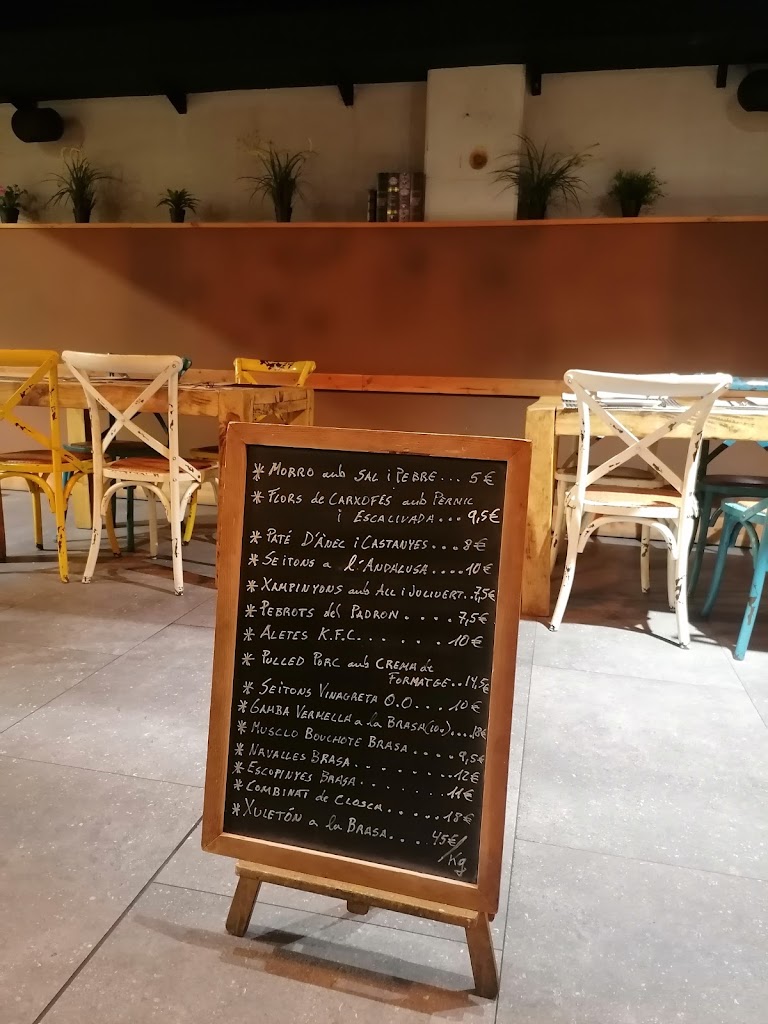 * MORRO amb SAL i PEBRE... 5€
* FLORS de CARXOFES amb PERNIL
i ESCALIVADA... 9,5€
* PATÉ D'ÀNEC i CASTANYES.... 8€
* SEITONS a l'ANDALUSA.... 10€
* XAMPINYONS amb ALL i JULIVERT.. 7,5€
* PEBROTS del PADRON..... 7,5€
* ALETES K.F.C....... 10€
* PULLED PORC amb CREMA de
FORMATGE.. 14,5€
* SEITONS VINAGRETA O.O.... 10€
* GAMBA VERMELLA a la BRASA (10u).... 18€
* MUSCLO BOUCHOTE BRASA..... 9,5€
* NAVALLES BRASA........ 12€
* ESCOPINYES BRASA........ 11€
* COMBINAT de CLOSCA...... 18€
* XULETÓN a la BRASA.... 45€/Kg